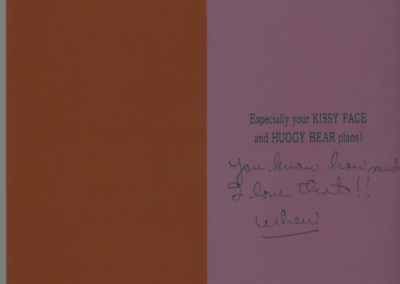 Especially your KISSY FACE
and HUGGY BEAR plans!
You know how much
I love that!!